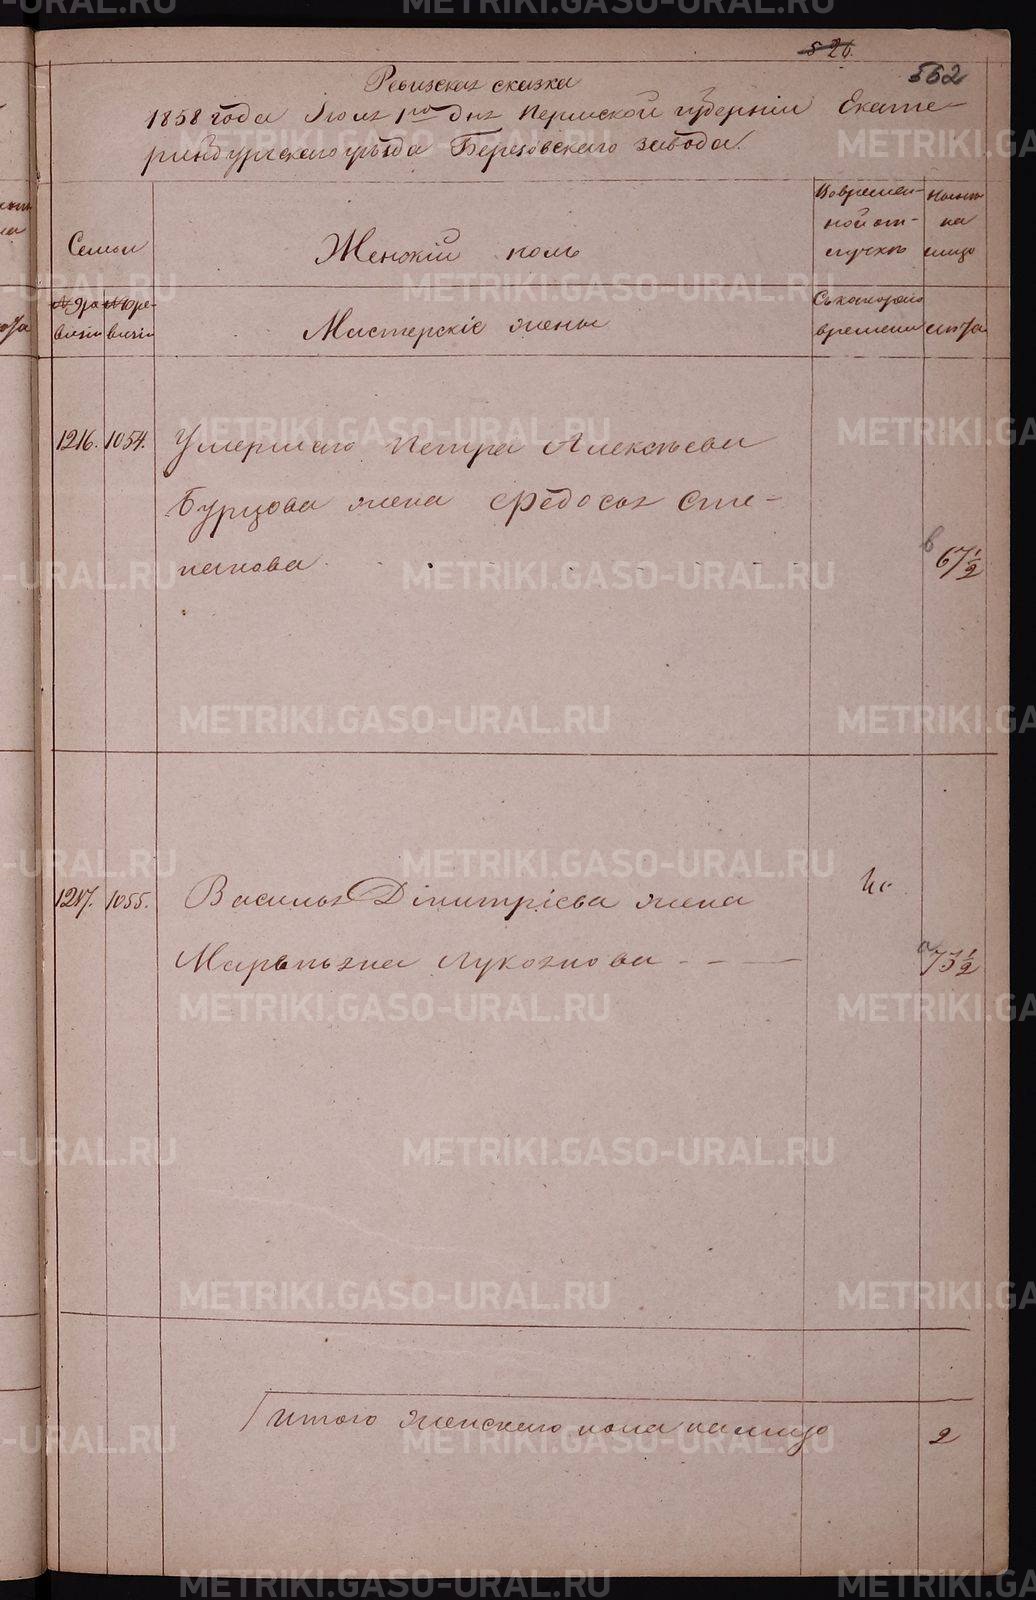 526.
562
Ревизская сказка
1858 года Июля 1го дня Пермской губернiи Екате-
ринбургскаго уѣзда Березовскаго завода.
Семьи
Женскiй полъ
Вовремен-
ной от-
лучкѣ
Ныне
на
лицо
№ 9 ре
визiи
№ 10 ре-
визiи
Мастерскiе жены
Съкотораго
времени
лѣта
1216.
1054.
Умершаго Петра Алексѣева
Бурцова жена Федосья Сте-
панова
67 1/2
1217.
1055.
Василья Дімитрiева жена
Маремьяна Лукоянова
73 1/2
Итого женскаго пола налицо
2
METRIKI.GASO-URAL.RU